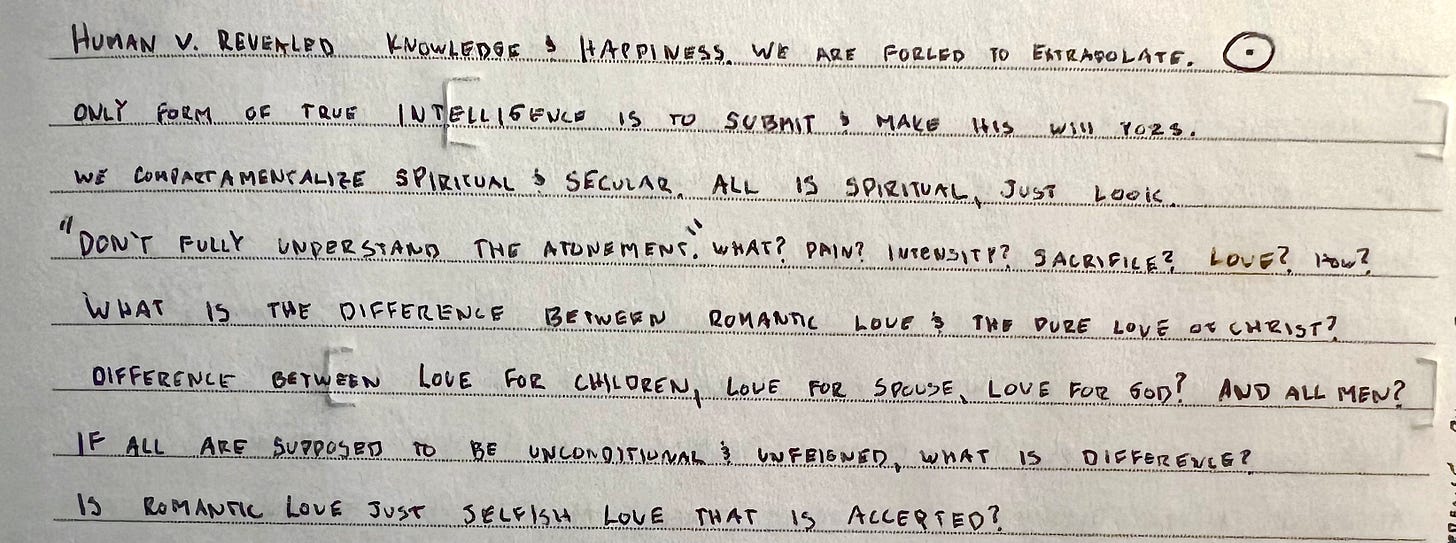 HUMAN V. REVEALED KNOWLEDGE & HAPPINESS. WE ARE FORCED TO EXTRAPOLATE.
ONLY FORM OF TRUE INTELLIGENCE IS TO SUBMIT & MAKE HIS WILL YORS.
WE COMPARTAMENTALIZE SPIRITUAL & SECULAR. ALL IS SPIRITUAL, JUST LOOK.
"DON'T FULLY UNDERSTAND THE ATONEMENT." WHAT? PAIN? INTENSITY? SACRIFICE? LOVE? HOW?
WHAT IS THE DIFFERENCE BETWEEN ROMANTIC LOVE & THE PURE LOVE OF CHRIST?
DIFFERENCE BETWEEN LOVE FOR CHILDREN, LOVE FOR SPOUSE, LOVE FOR GOD? AND ALL MEN?
IF ALL ARE SUPPOSED TO BE UNCONDITIONAL & UNFEIGNED, WHAT IS DIFFERENCE?
IS ROMANTIC LOVE JUST SELFISH LOVE THAT IS ACCEPTED?